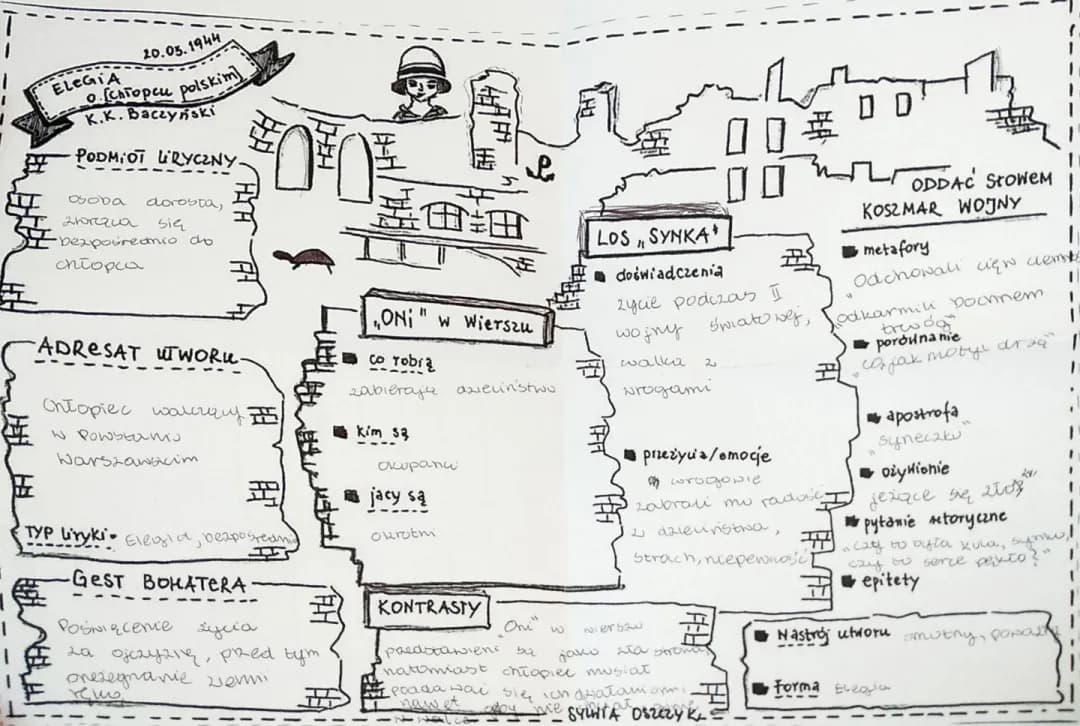 20.03.1944
ELEGIA
O [chłopcu polskim]
K.K. Baczyński
PODMIOT LIRYCZNY
osoba dorosła,
zwraca się
bezpośrednio do
chłopca
ADRESAT UTWORU
Chłopiec walczący
w Powstaniu
Warszawskim
TYP liryki • Elegia, bezpośrednia
GEST BOHATERA
Poświęcenie życia
za ojczyznę, przed tym
przeżegnanie ziemi
ręką
„ONI" w wierszu
co robią
zabierają dzieciństwo
kim są
okupanci
jacy są
okrutni
KONTRASTY
„Oni" w wierszu
przedstawieni są jako zła strona,
natomiast chłopiec musiał
poddawać się ich działaniom
nawet aby nie
w walce
SYLWIA OSZCZYK
LOS „SYNKA"
doświadczenia
życie podczas II
wojny światowej,
walka z
wrogami
przeżycia/emocje
wrogowie
zabrali mu radość
z dzieciństwa,
strach, niepewność
ODDAĆ SŁOWEM
KOSZMAR WOJNY
metafory
"odchowali cię w ciemno
"odkarmili bochnem
trwóg"
porównanie
"co jak motyl drżą"
apostrofa
"syneczku"
ożywienie
jeżące się zło
pytanie retoryczne
"czy to była kula, synku,
czy to serce pękło?"
epitety
Nastrój utworu smutny, poważny
Forma Elegia